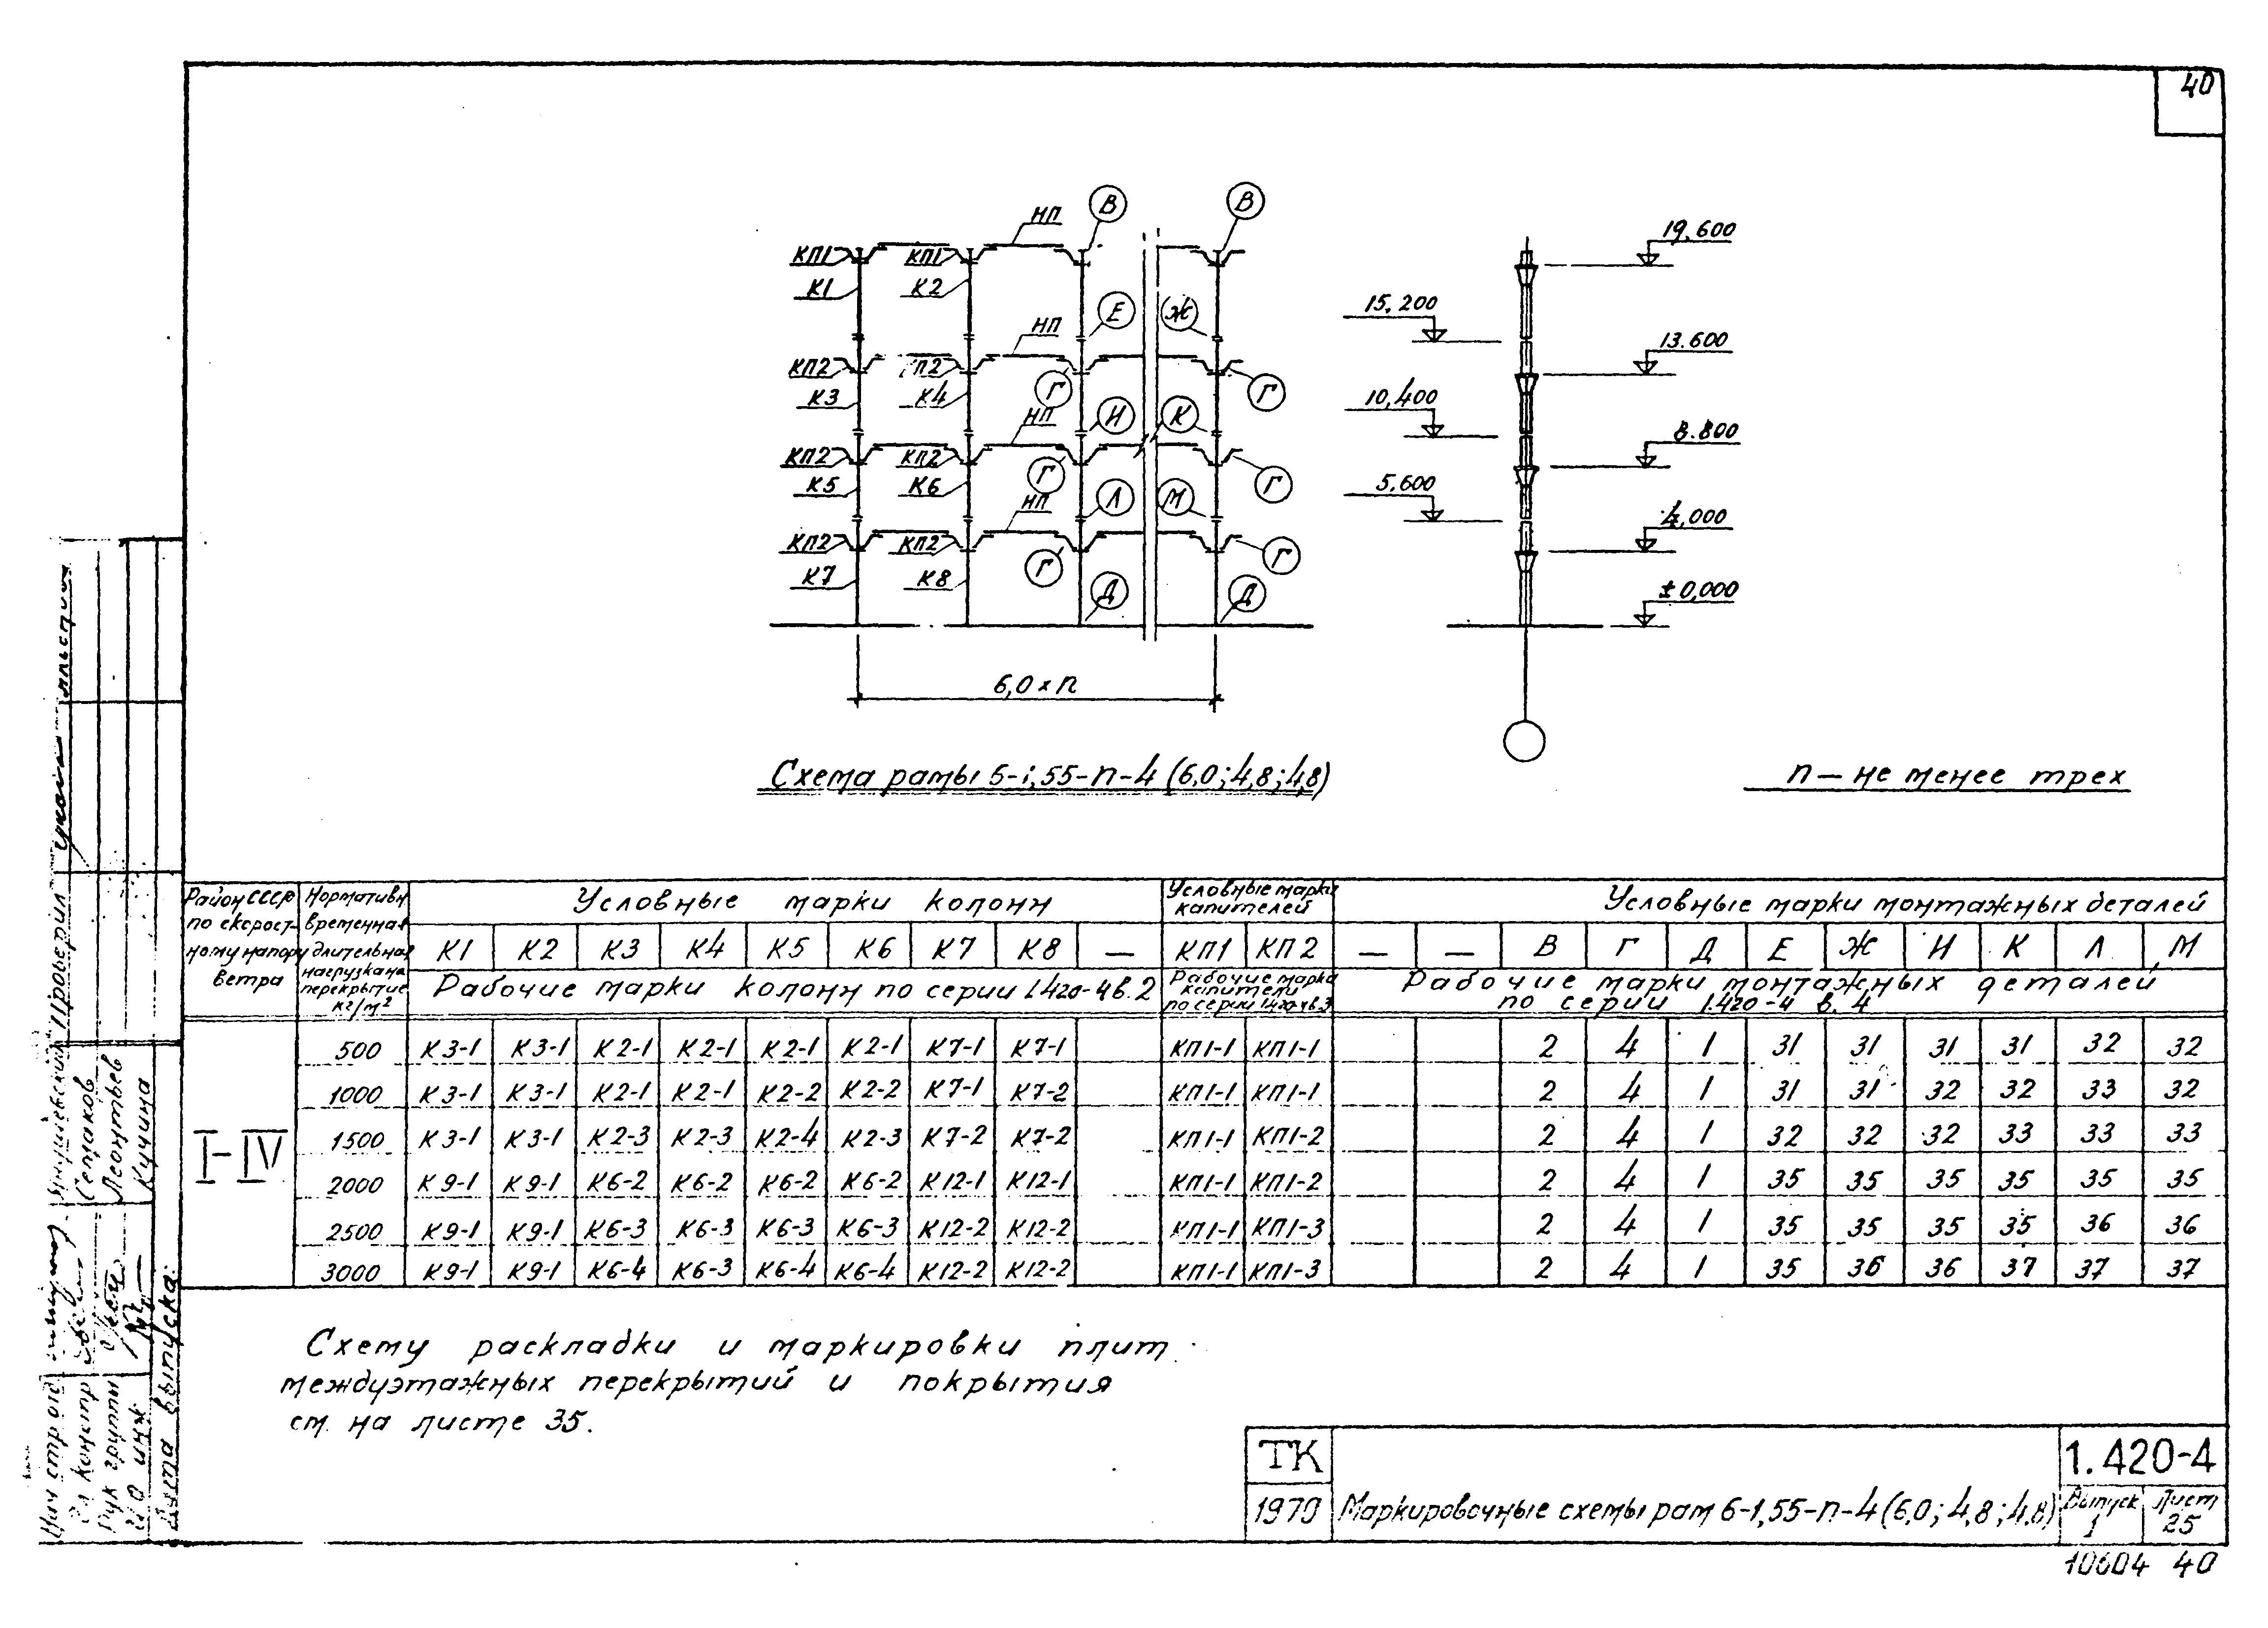 40
НП
В
В
19,600
КП1
КП1
К1
К2
15,200
Е
Ж
НП
13.600
КП2
КП2
Г
Г
К3
К4
10,400
НП
И
К
8.800
КП2
КП2
Г
Г
К5
К6
5,600
НП
Л
М
4,000
КП2
КП2
Г
Г
К7
К8
Д
Д
± 0,000
6,0 × п
Схема рамы 6-1,55-п-4 (6,0; 4,8; 4,8)
п — не менее трех
Район СССР по скорост- ному напору ветра
Нормативн временная длительная нагрузка на перекрытие кг/м²
Условные марки колонн
Условные марки капителей
Условные марки монтажных деталей
К1 К2 К3 К4 К5 К6 К7 К8 —
КП1 КП2
— — В Г Д Е Ж И К Л М
Рабочие марки колонн по серии 1.420-4 в. 2
Рабочие марки капители по серии 1.420-4 в.3
Рабочие марки монтажных деталей
по серии 1.420-4 в. 4
I-IV
500 К3-1 К3-1 К2-1 К2-1 К2-1 К2-1 К7-1 К7-1 КП1-1 КП1-1 2 4 1 31 31 31 31 32 32
1000 К3-1 К3-1 К2-1 К2-1 К2-2 К2-2 К7-1 К7-2 КП1-1 КП1-1 2 4 1 31 31 32 32 33 32
1500 К3-1 К3-1 К2-3 К2-3 К2-4 К2-3 К7-2 К7-2 КП1-1 КП1-2 2 4 1 32 32 32 33 33 33
2000 К9-1 К9-1 К6-2 К6-2 К6-2 К6-2 К12-1 К12-1 КП1-1 КП1-2 2 4 1 35 35 35 35 35 35
2500 К9-1 К9-1 К6-3 К6-3 К6-3 К6-3 К12-2 К12-2 КП1-1 КП1-3 2 4 1 35 35 35 35 36 36
3000 К9-1 К9-1 К6-4 К6-3 К6-4 К6-4 К12-2 К12-2 КП1-1 КП1-3 2 4 1 35 36 36 37 37 37
Схему раскладки и маркировки плит
междуэтажных перекрытий и покрытия
см. на листе 35.
ТК
1970
Маркировочные схемы рам 6-1,55-п-4 (6,0; 4,8; 4,8)
1.420-4
Выпуск 1
Лист 25
10604 40
Проверил
Семаков
Леонтьев
Кучина
Нач стр отд
Гл констр
Рук группы
Дата выпуска